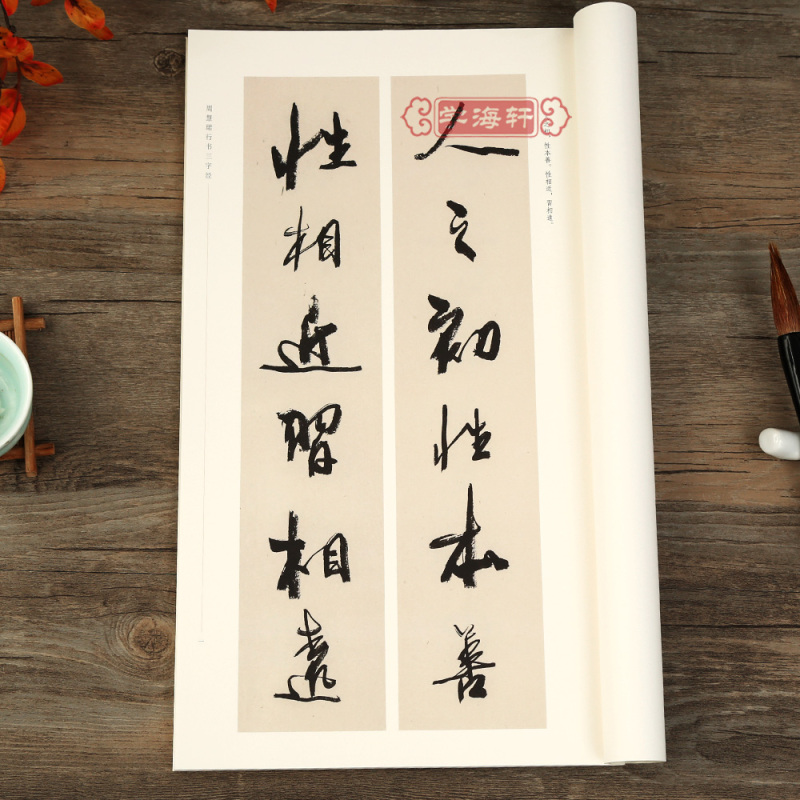 学海轩
性本善，性相近，习相远。
人之初性本善
性相近習相遠
周慧珺行书三字经